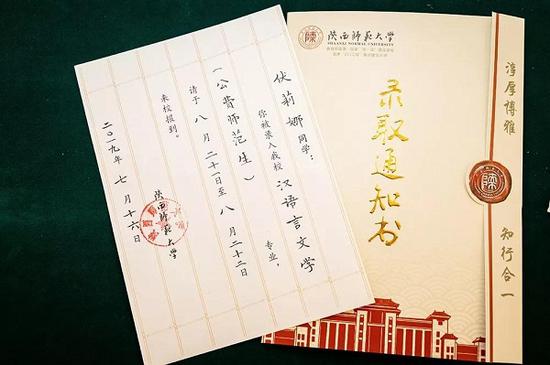 伏莉娜同学：
你被录入我校 汉语言文学 专业，
（公费师范生）
请于八月二十一日至八月二十二日
来校报到。
陕西师范大学
二〇一九年七月十六日
陕西师范大学
SHAANXI NORMAL UNIVERSITY
录取通知书
淳厚博雅
知行合一